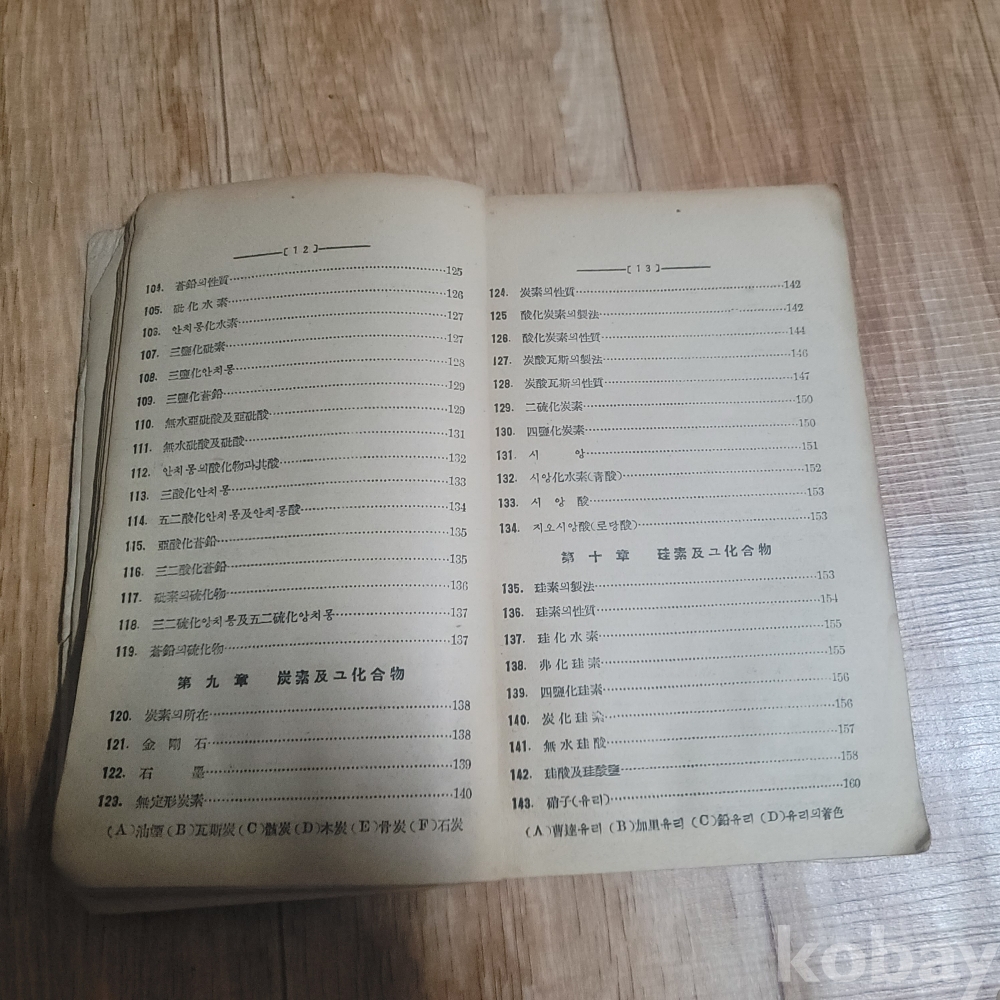 〔12〕
104. 蒼鉛의性質……125
105. 砒化水素……126
106. 안치몽化水素……127
107. 三鹽化砒素……127
108. 三鹽化안치몽……128
109. 三鹽化蒼鉛……129
110. 無水亞砒酸及亞砒酸……129
111. 無水砒酸及砒酸……131
112. 안치몽의酸化物과其酸……132
113. 三酸化안치몽……133
114. 五二酸化안치몽及안치몽酸……134
115. 亞酸化蒼鉛……135
116. 三二酸化蒼鉛……135
117. 砒素의硫化物……136
118. 三二硫化앙치몽及五二硫化앙치몽……137
119. 蒼鉛의硫化物……137
第九章 炭素及그化合物
120. 炭素의所在……138
121. 金剛石……138
122. 石墨……139
123. 無定形炭素……140
(A)油煙(B)瓦斯炭(C)骸炭(D)木炭(E)骨炭(F)石炭
〔13〕
124. 炭素의性質……142
125 酸化炭素의製法……142
126. 酸化炭素의性質……144
127. 炭酸瓦斯의製法……146
128. 炭酸瓦斯의性質……147
129. 二硫化炭素……150
130. 四鹽化炭素……150
131. 시앙……151
132. 시앙化水素(靑酸)……152
133. 시앙酸……153
134. 지오시앙酸(로당酸)……153
第十章 珪素及그化合物
135. 珪素의製法……153
136. 珪素의性質……154
137. 珪化水素……155
138. 弗化珪素……155
139. 四鹽化珪素……156
140. 炭化珪素……156
141. 無水珪酸……157
142. 珪酸及珪酸鹽……158
143. 硝子(유리)……160
(A)曹達유리 (B)加里유리 (C)鉛유리 (D)유리의着色
kobay